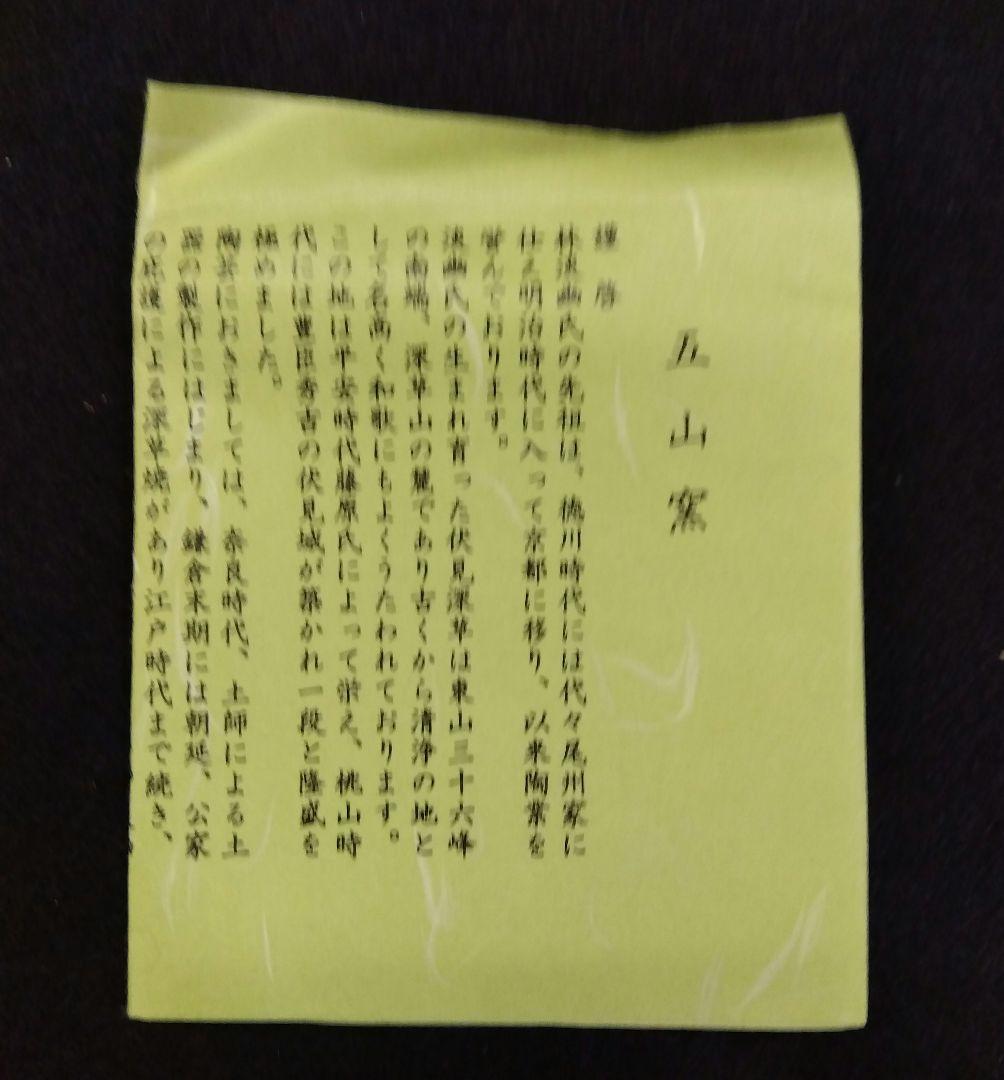 五山窯
謹啓
林淡幽氏の先祖は、徳川時代には代々尾州家に
仕え明治時代に入って京都に移り、以来陶業を
営んでおります。
淡幽氏の生まれ育った伏見深草は東山三十六峰
の南端、深草山の麓であり古くから清浄の地と
して名高く和歌にもよくうたわれております。
この地は平安時代藤原氏によって栄え、桃山時
代には豊臣秀吉の伏見城が築かれ一段と隆盛を
極めました。
陶芸におきましては、奈良時代、土師による土
器の製作にはじまり、鎌倉末期には朝延、公家
の庇護による深草焼があり江戸時代まで続き、